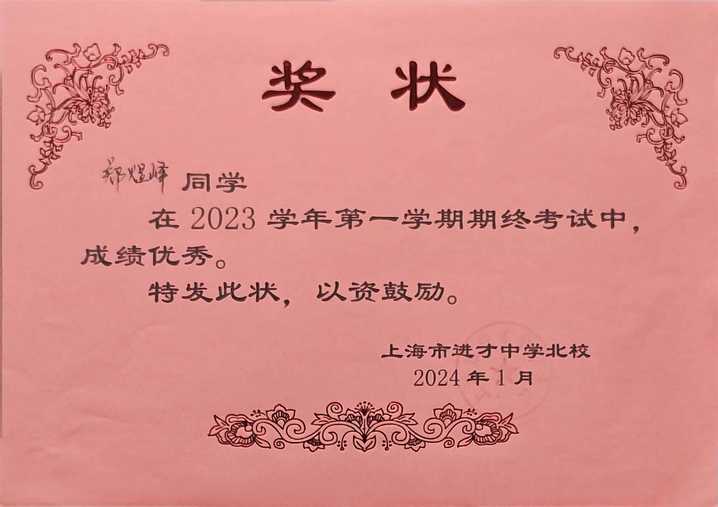 奖状
郑煜峰 同学
在 2023 学年第一学期期终考试中，
成绩优秀。
特发此状，以资鼓励。
上海市进才中学北校
2024 年 1 月